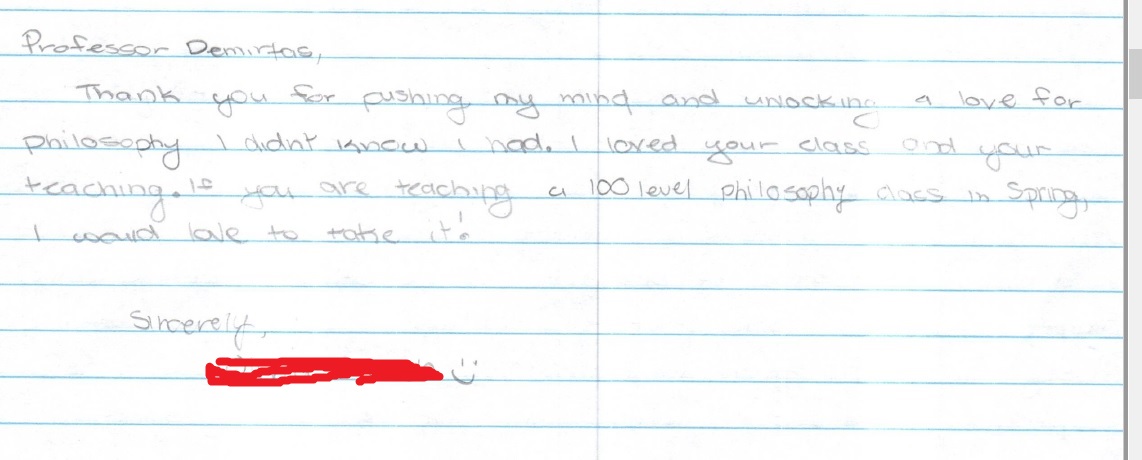 Professor Demirtas,
Thank you for pushing my mind and unlocking a love for
philosophy I didnt know I had. I loved your class and your
teaching. If you are teaching a 100 level philosophy class in Spring,
I would love to take it!
Sincerely,